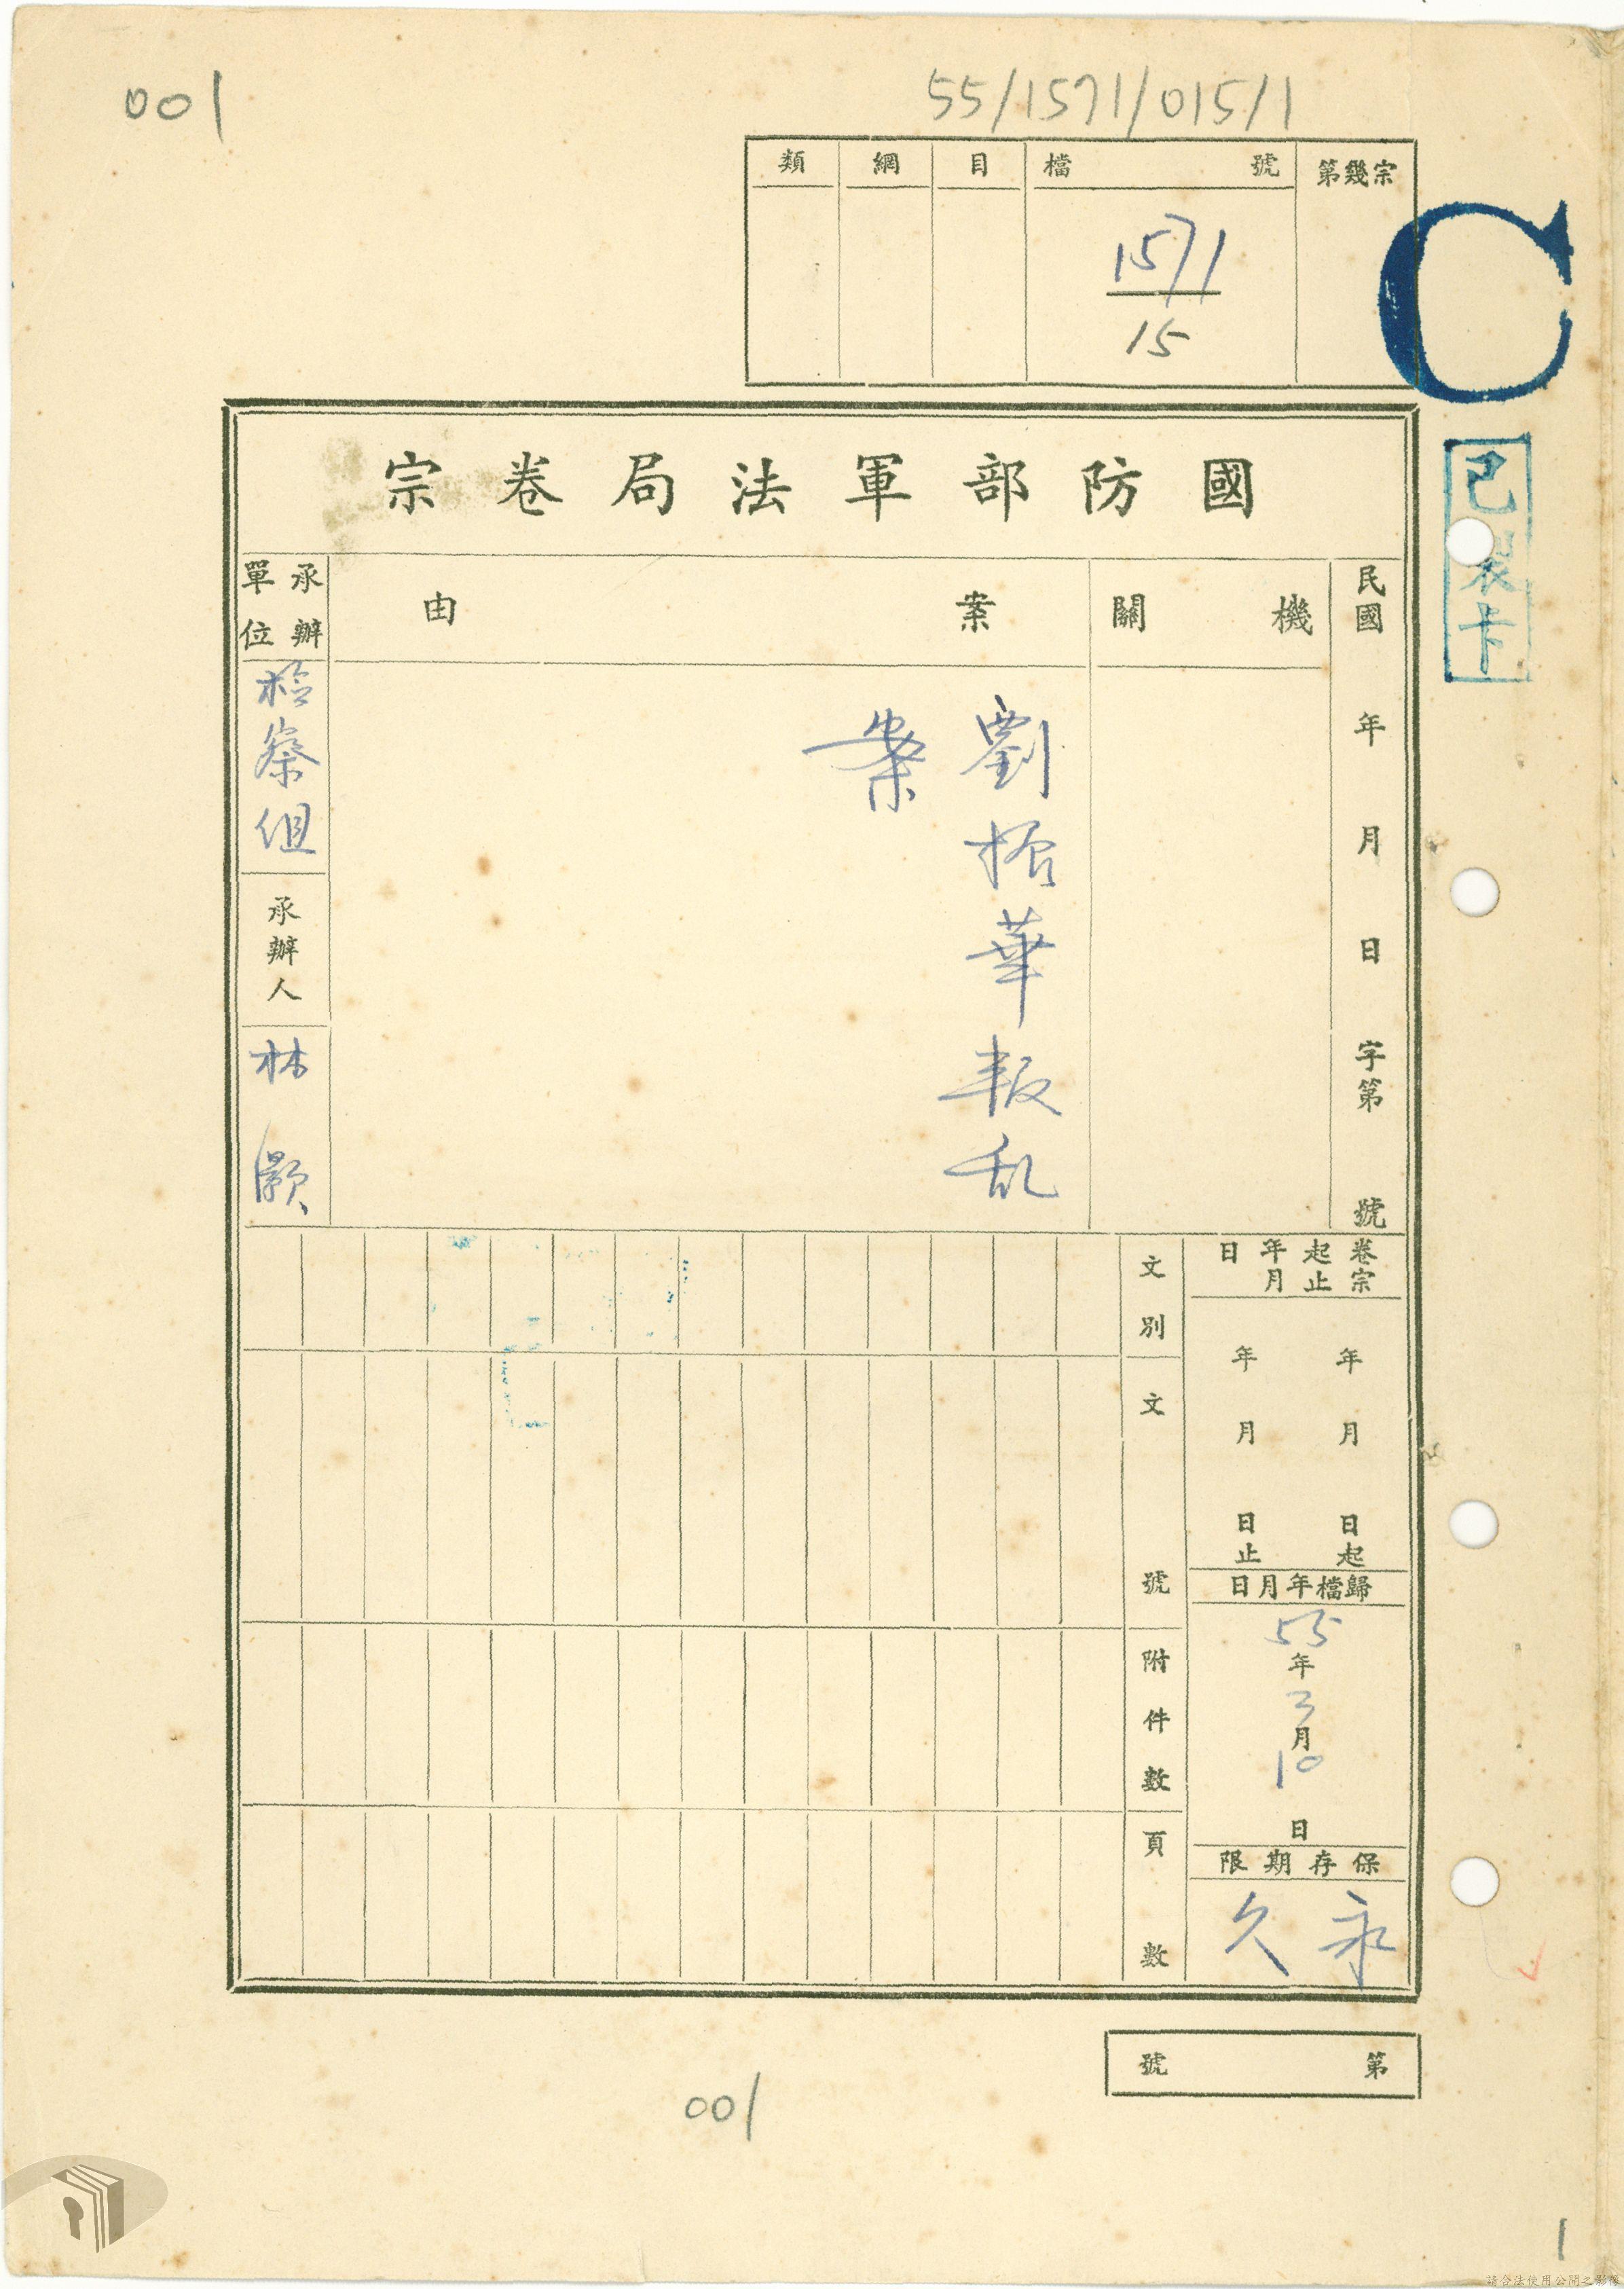 001
55/1571/015/1
第幾宗
檔號
目
綱
類
1571
15
C
已製卡
國防部軍法局卷宗
民國 年 月 日 字第 號
機關
案由
劉

華叛乱
案
承辦單位
檢察組
承辦人
林灝
卷宗起止年月日
年 月 日起
年 月 日止
歸檔年月日
55年3月10日
保存期限
永久
文別
文號
附件數
頁數
第 號
001
1
請合法使用公開之影像